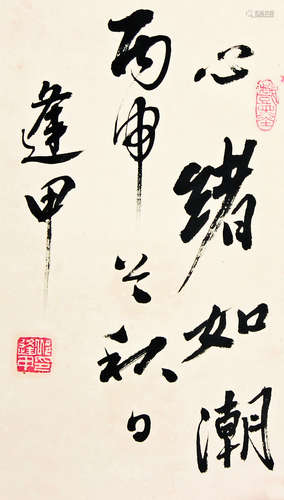 心绪如潮
丙申之秋日
逢甲